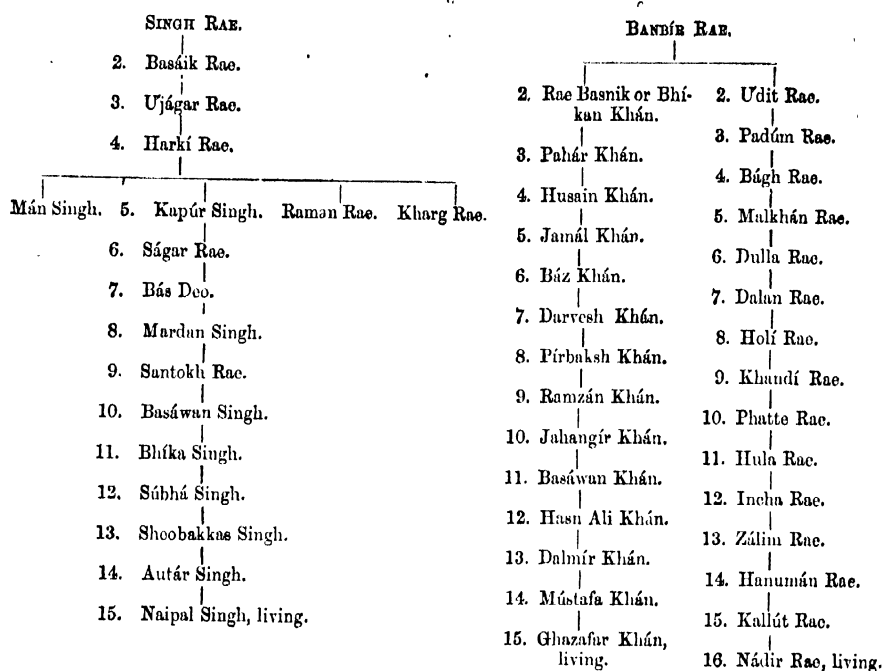 SINGH RAE.
2. Basáik Rae.
3. U'jágar Rae.
4. Harkí Rae.
Mán Singh. 5. Kapúr Singh. Raman Rae. Kharg Rae.
6. Ságar Rae.
7. Bás Deo.
8. Mardan Singh.
9. Santokh Rae.
10. Basáwan Singh.
11. Bhíka Singh.
12. Súbhá Singh.
13. Sheobakkas Singh.
14. Autár Singh.
15. Naipal Singh, living.
BANBÍR RAE.
2. Rae Basnik or Bhí-
kan Khán.
3. Pahár Khán.
4. Husain Khán.
5. Jamál Khán.
6. Báz Khán.
7. Darvesh Khán.
8. Pírbaksh Khán.
9. Ramzán Khán.
10. Jahangír Khán.
11. Basáwan Khán.
12. Hasn Ali Khán.
13. Dalmír Khán.
14. Mústafa Khán.
15. Ghazafar Khán,
living.
2. U'dit Rae.
3. Padúm Rae.
4. Bágh Rae.
5. Malkhán Rae.
6. Dulla Rae.
7. Dalan Rae.
8. Holí Rae.
9. Khandí Rae.
10. Phatte Rae.
11. Hula Rae.
12. Incha Rae.
13. Zálim Rae.
14. Hanumán Rae.
15. Kallút Rae.
16. Nádir Rae, living.